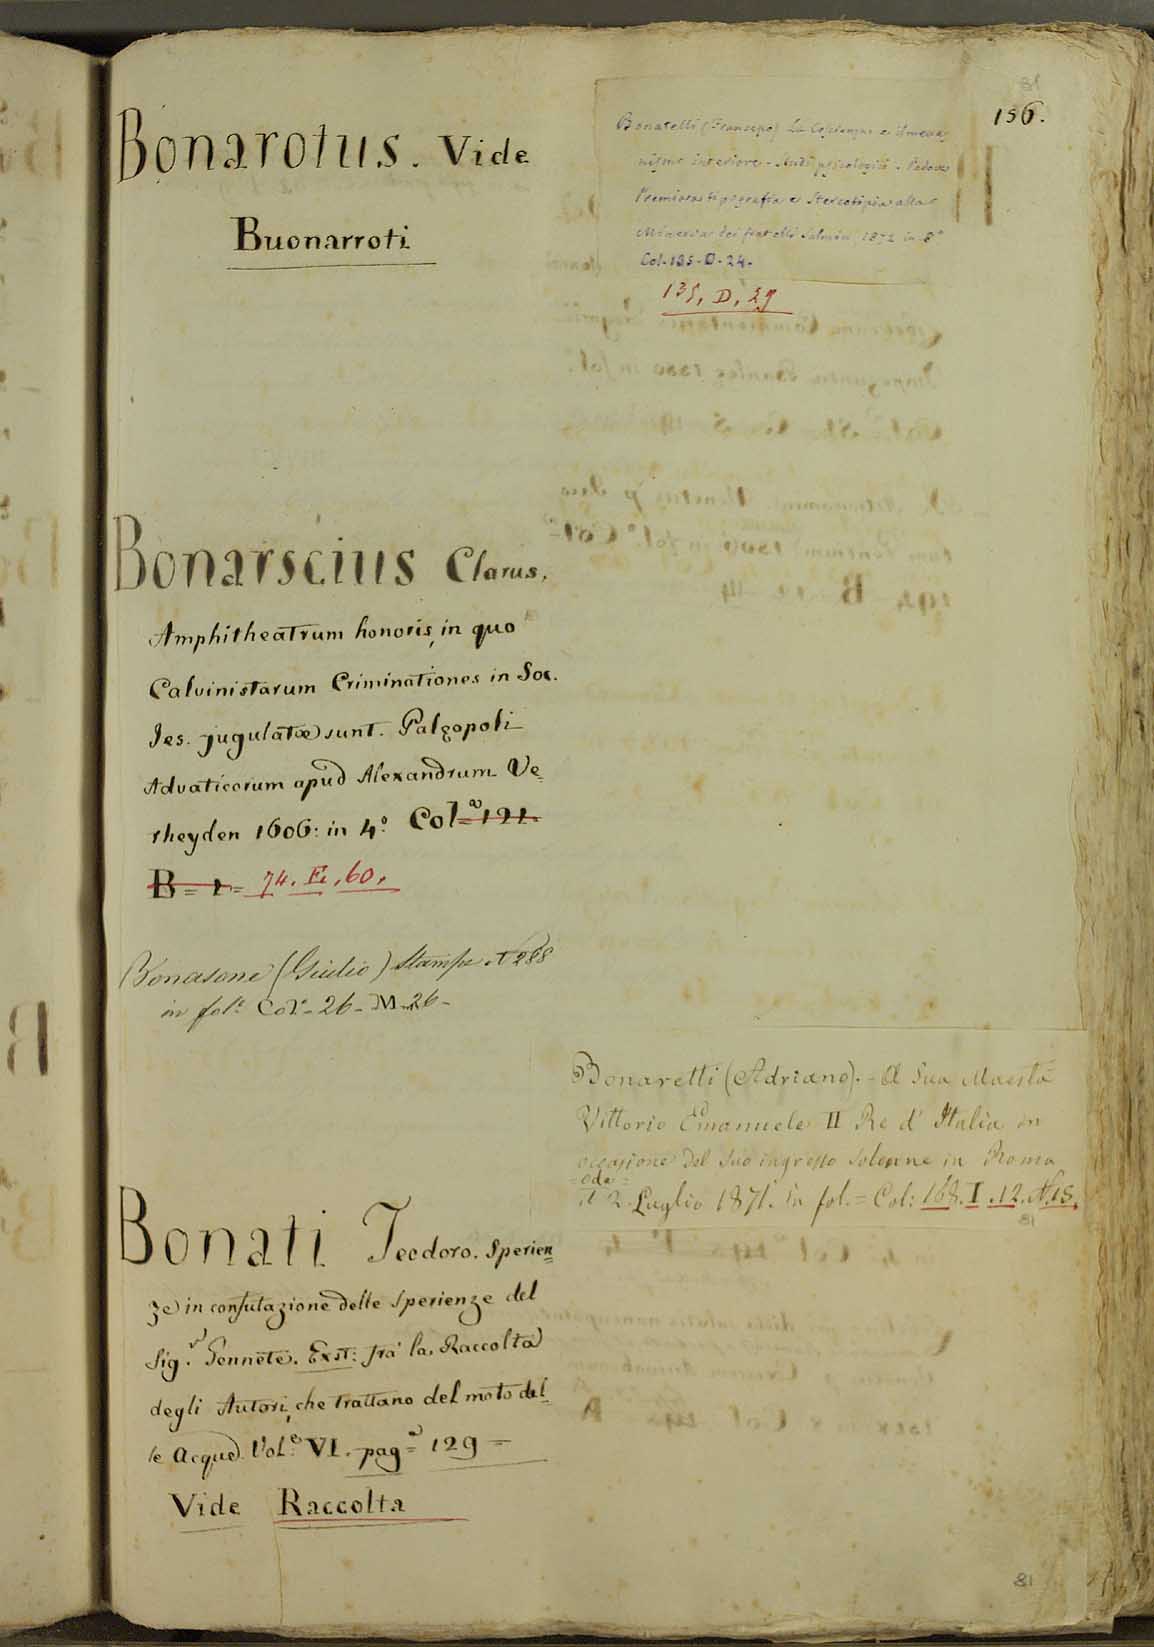 Bonarotus. Vide
Buonarroti
Bonarscius Clarus,
Amphitheatrum honoris, in quo
Calvinistarum Criminationes in Soc.
Jes. jugulatæ sunt. Palæopoli
Advaticorum apud Alexandrum Ve=
rheyden 1606: in 4.º Col.ª 121
B = 1 = 74. E. 60.
Bonasone (Giulio) Stampe N 288
in fol.º Col.ª 26 - M. 26 -
Bonati Teodoro. Sperien=
ze in confutazione delle sperienze del
Sig.r Gennetè. Exst: frà la Raccolta
degli Autori, che trattano del moto del=
le Acque. Vol.e VI. pag.ª 129 =
Vide Raccolta
156.
Bonatelli (Francesco) La Coscienza e il mecca
nismo interiore - Studi psicologici - Padova
Premiata tipografia e Stereotipia alla
Minerva dei fratelli Salmin 1872 in 8º
Col. 135 - D - 24 -
135. D. 29
Bonaretti (Adriano). - A Sua Maestà
Vittorio Emanuele II Re d' Italia in
occasione del suo ingresso solenne in Roma
= Ode =
il 2 Luglio 1871. in fol. = Col: 168. I. 12. N. 15.
81
81